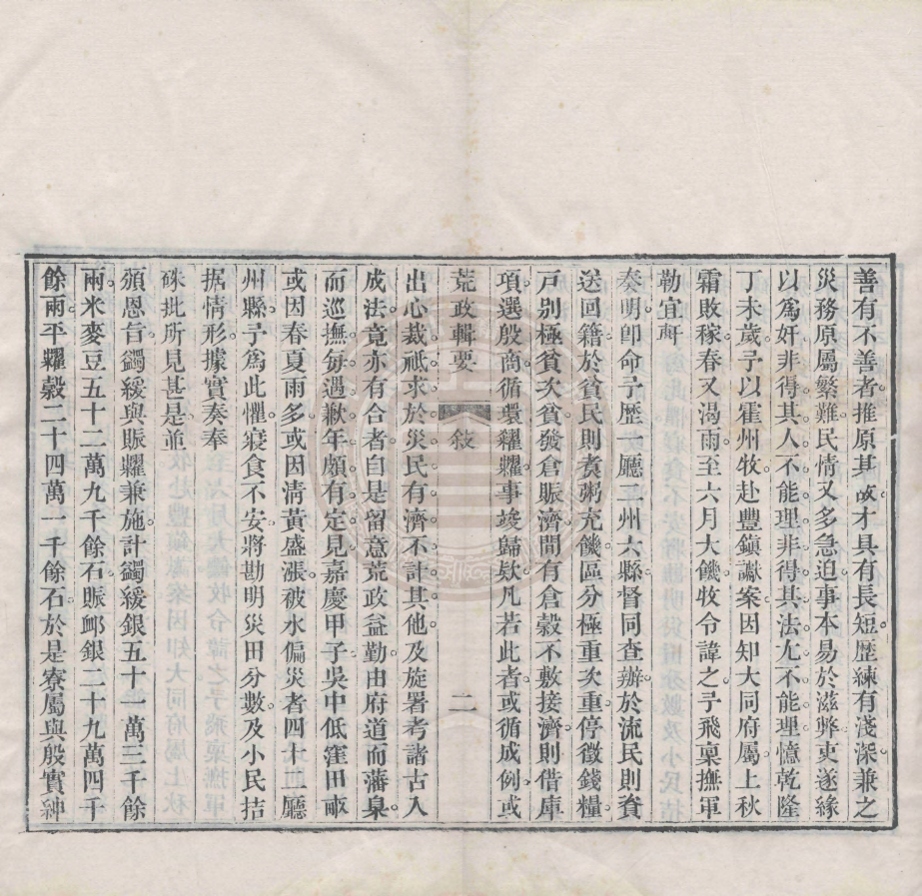 善有不善者推原其故才具有長短歷練有淺深兼之
災務原屬繁難民情又多急迫事本易於滋弊吏遂緣
以爲奸非得其人不能理非得其法尤不能理憶乾隆
丁未歲予以霍州牧赴豐鎮讞案因知大同府屬上秋
霜敗稼春又渴雨至六月大饑牧令諱之予飛稟撫軍
勒宜軒
奏明卽命予歷一廳二州六縣督同查辦於流民則資
送回籍於貧民則煑粥充饑區分極重次重停徵錢糧
戸別極貧次貧發倉賑濟間有倉穀不敷接濟則借庫
項選殷商循環糴糶事竣歸欵凡若此者或循成例或
荒政輯要
敘
二
出心裁祇求於災民有濟不計其他及旋署考諸古人
成法竟亦有合者自是留意荒政益勤由府道而藩臬
而巡撫每遇歉年頗有定見嘉慶甲子吳中低窪田畝
或因春夏雨多或因清黃盛漲被水偏災者四十
廳
州縣予爲此懼寢食不安將勘明災田分數及小民拮
据情形據實奏奉
硃批所見甚是並
頒恩旨蠲緩與賑糶兼施計蠲緩銀五十一萬三千餘
兩米麥豆五十二萬九千餘石賑卹銀二十九萬四千
餘兩平糶穀二十四萬一千餘石於是寮屬與殷實紳